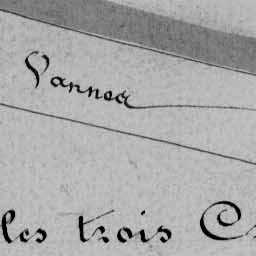 Vannea
les trois C